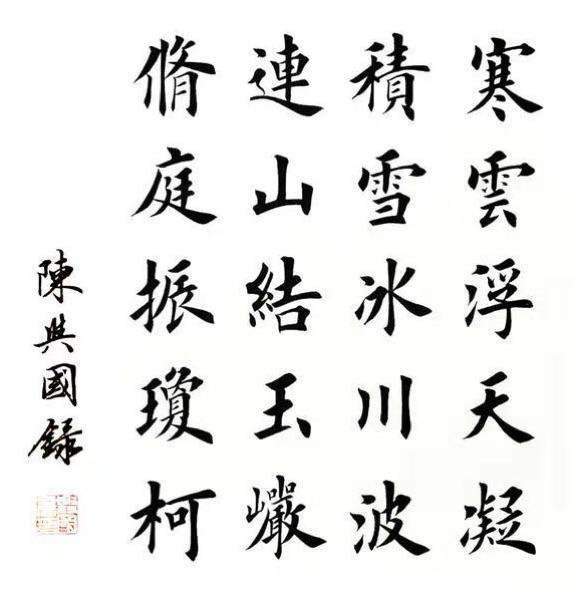 寒雲浮天凝
積雪冰川波
連山結玉巗
脩庭振瓊柯
陳興國録